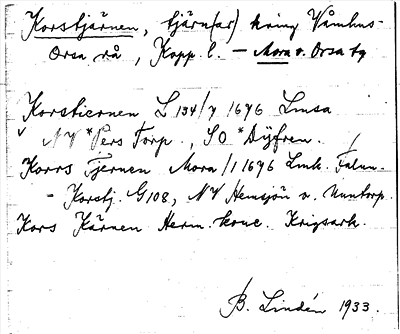 Korstjärnen, tjärn(ar) kring Våmhus-
Orsa rå, Kopp. l. – Mora o. Orsa tg
Korstiernen L 134/7 1696 Linsa
NV *Pers Torp., SO *Dÿfren.
Korrs Tjernen Mora /1 1696 Lmk. Falun.
- Korstj. G 108, NV Hemsjön v. Nuntorp.
Kors Kärnen Herm. konc. Krigsark.
B. Lindén 1933.